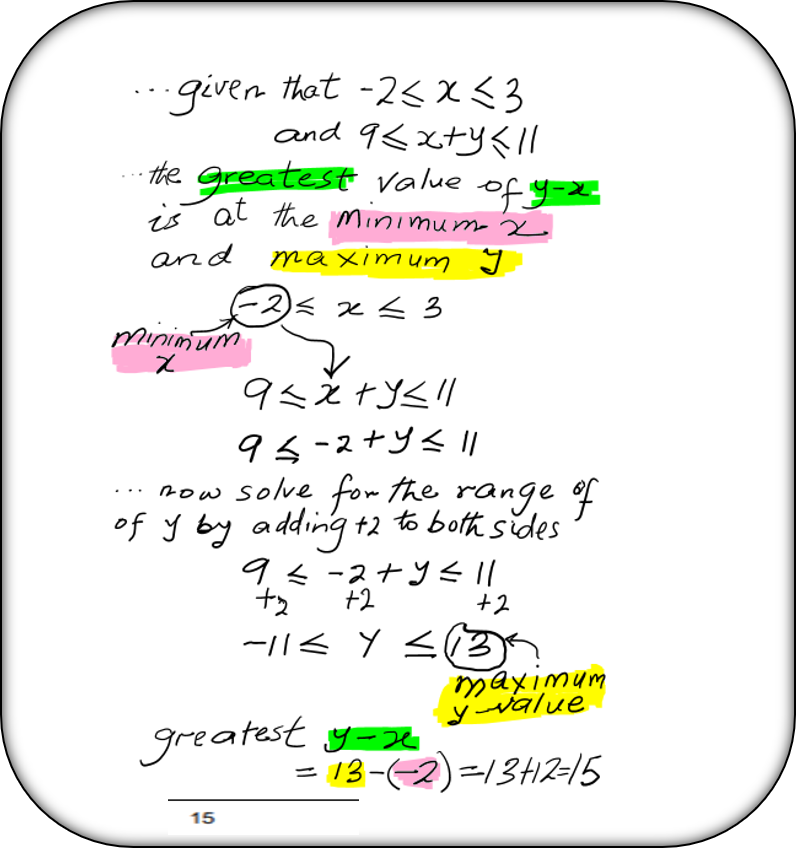 ...given that -2 ≤ x ≤ 3
and 9 ≤ x+y ≤ 11
...the greatest value of y-x
is at the minimum x
and maximum y
-2 ≤ x ≤ 3
minimum
x
9 ≤ x + y ≤ 11
9 ≤ -2 + y ≤ 11
... now solve for the range of
of y by adding +2 to both sides
9 ≤ -2 + y ≤ 11
+2 +2 +2
-11 ≤ y ≤ 13
maximum
y-value
greatest y-x
= 13-(-2) = 13+2=15
15